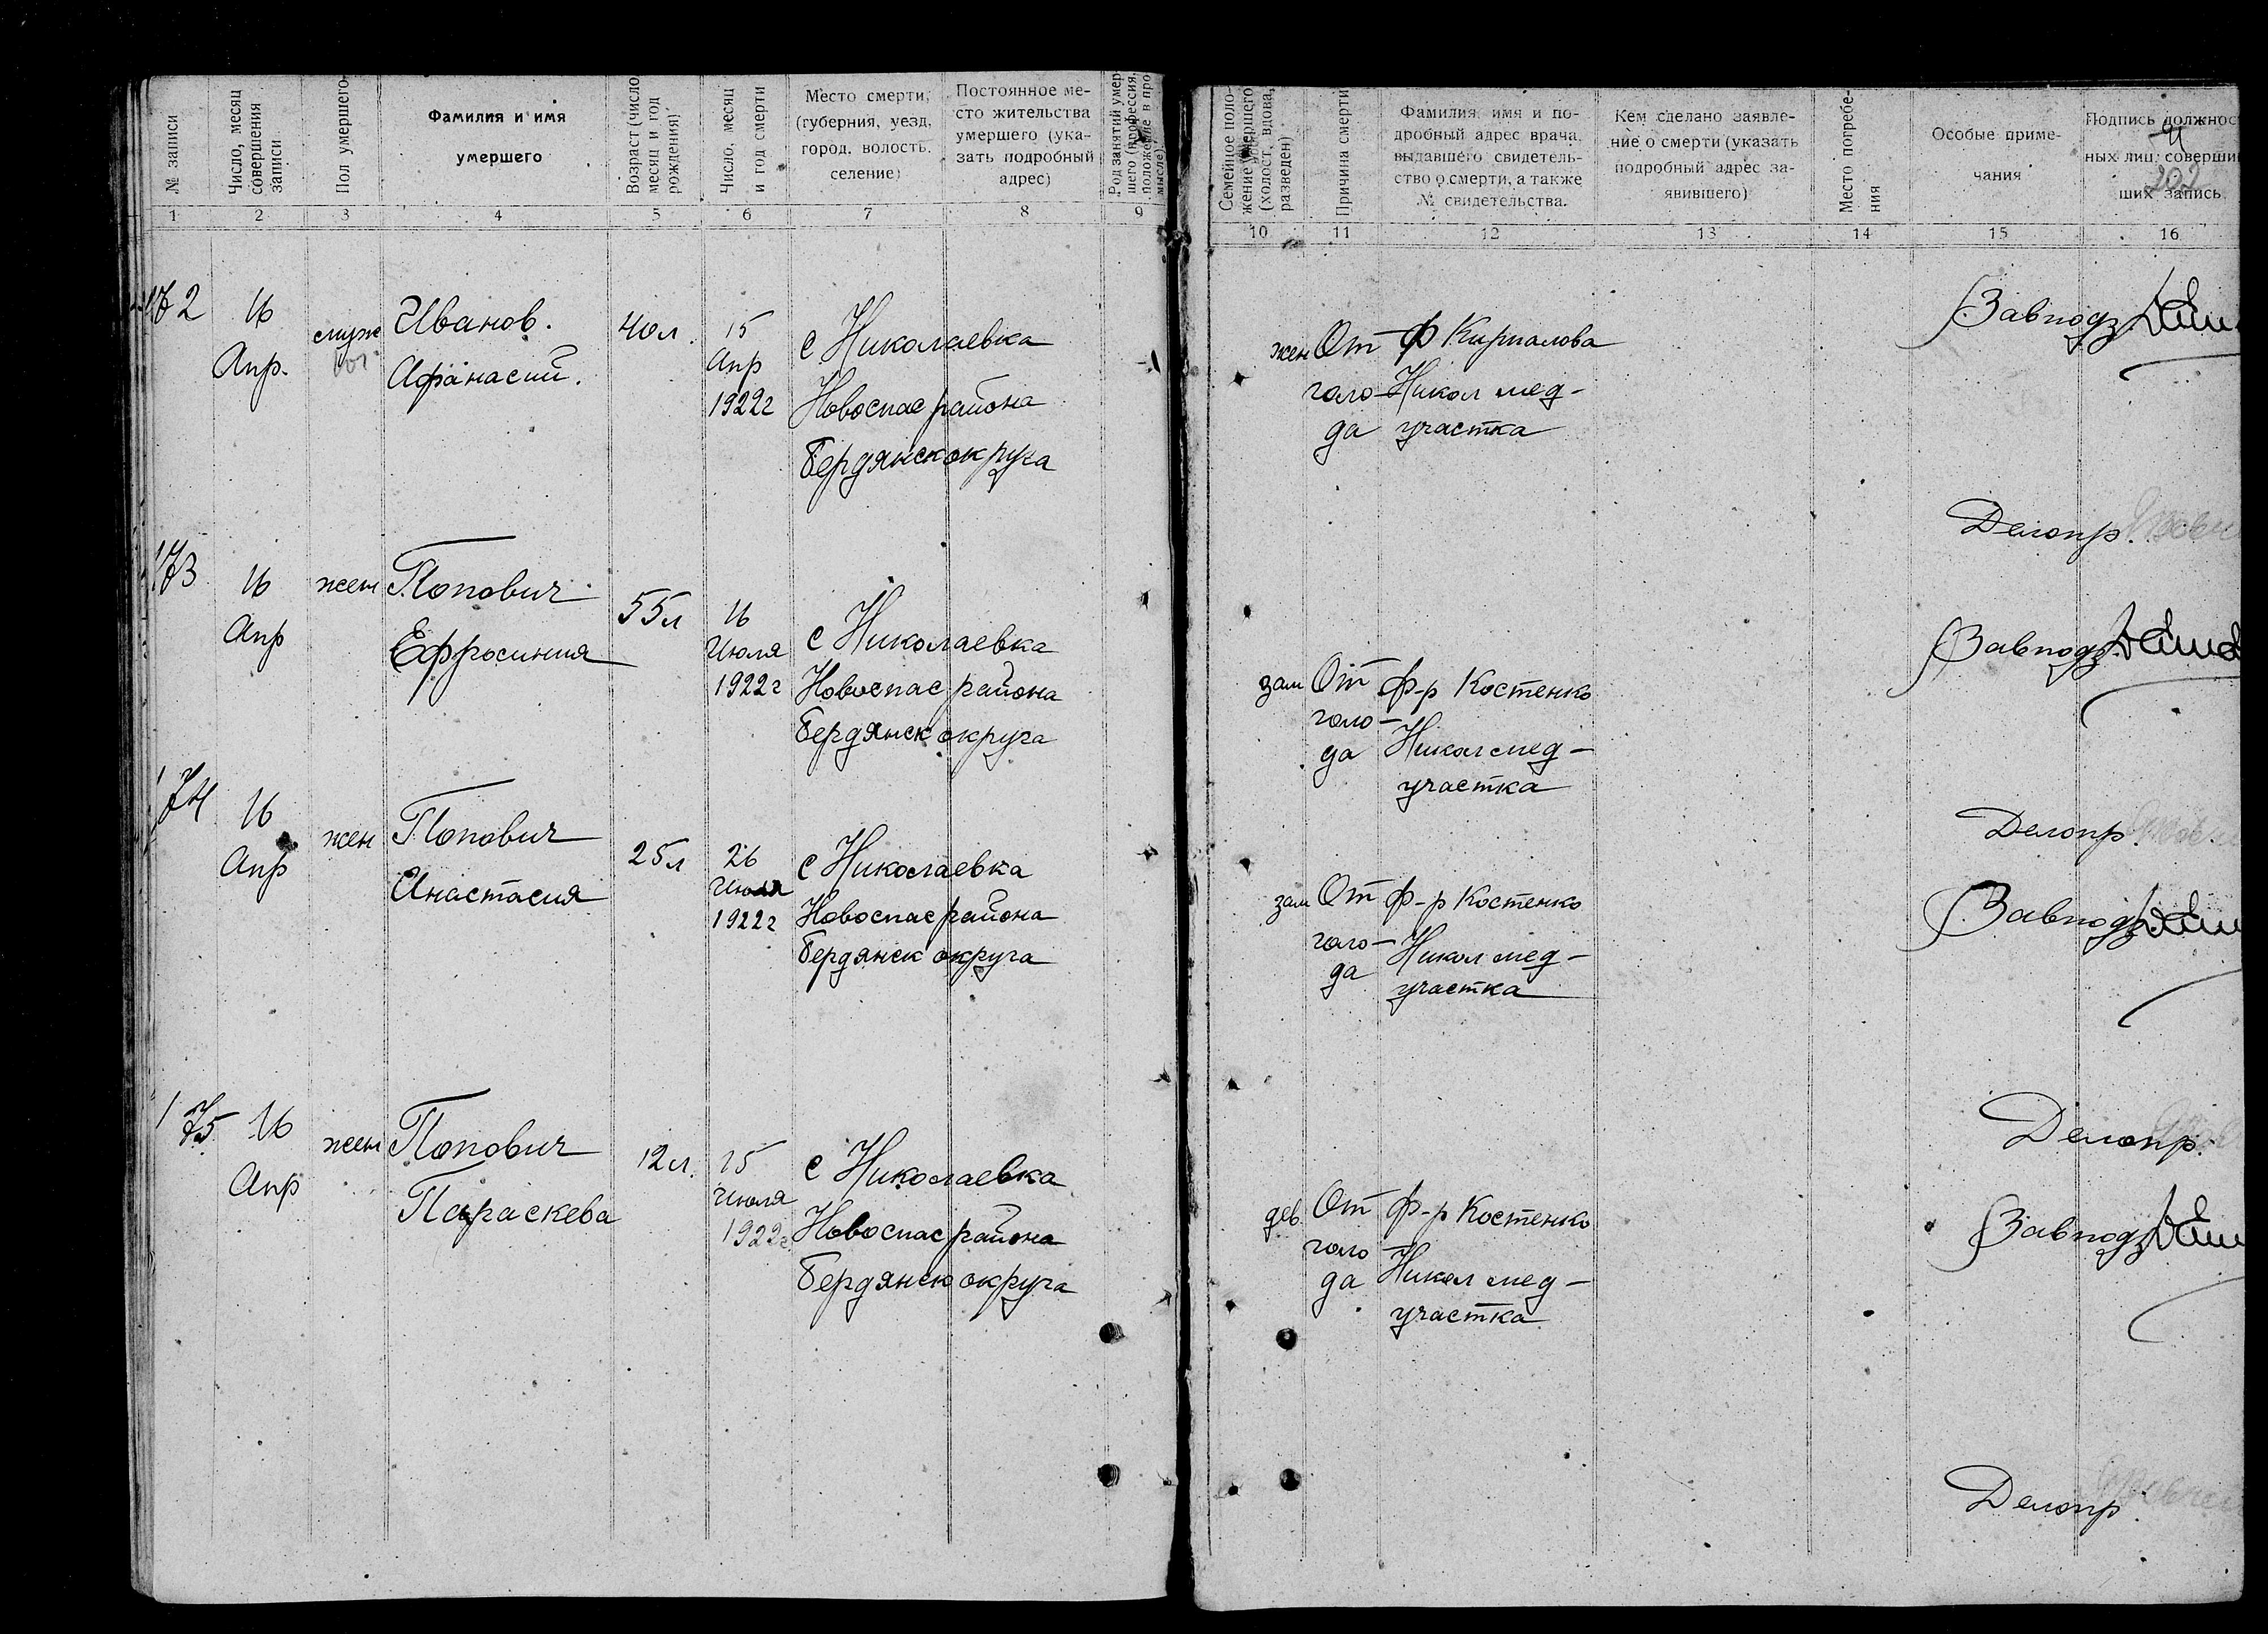 № записи
Число, месяц
совершения
записи
Пол умершего
Фамилия и имя
умершего
Возраст (число
месяц и год
рождения)
Число, месяц
и год смерти
Место смерти,
(губерния, уезд,
город, волость,
селение)
Постоянное ме-
сто жительства
умершего (ука-
зать подробный
адрес)
Род занятий умер-
шего (профессия,
положение в про
мысле)
1 2 3 4 5 6 7 8 9
172
16
Апр.
Иванов.
Афанасий.
40 л.
15
Апр
1922г
с Николаевка
Новоспас района
Бердянск округа
173
16
Апр
жен
Попович
Ефросиния
55 л
16
Июля
1922г
с Николаевка
Новоспас района
Бердянск округа
174
16
Апр
жен
Попович
Анастасия
25 л
26
Июля
1922г
с Николаевка
Новоспас района
Бердянск округа
175
16
Апр
жен
Попович
Параскева
12 л.
15
Июля
1922г.
с Николаевка
Новоспас района
Бердянск округа
Семейное поло-
жение умершего
(холост, вдова,
разведен)
Причина смерти
Фамилия, имя и по-
дробный адрес врача,
выдавшего свидетель-
ство о смерти, а также
№ свидетельства.
Кем сделано заявле-
ние о смерти (указать
подробный адрес за-
явившего)
Место погребе-
ния
Особые приме-
чания
Подпись должнос
ных лиц, соверши
ших запись
202
10 11 12 13 14 15 16
жен
От
голо-
да
Ф
Никол мед-
участка
Завподз
Делопр.
зам
От
голо-
да
Ф-р Костенко
Никол мед-
участка
Завподз.
Делопр.
зам
От
голо-
да
Ф-р Костенко
Никол мед-
участка
Завподз
Делопр.
дев.
От
голо-
да
Ф-р Костенко
Никол мед-
участка
Завподз
Делопр.